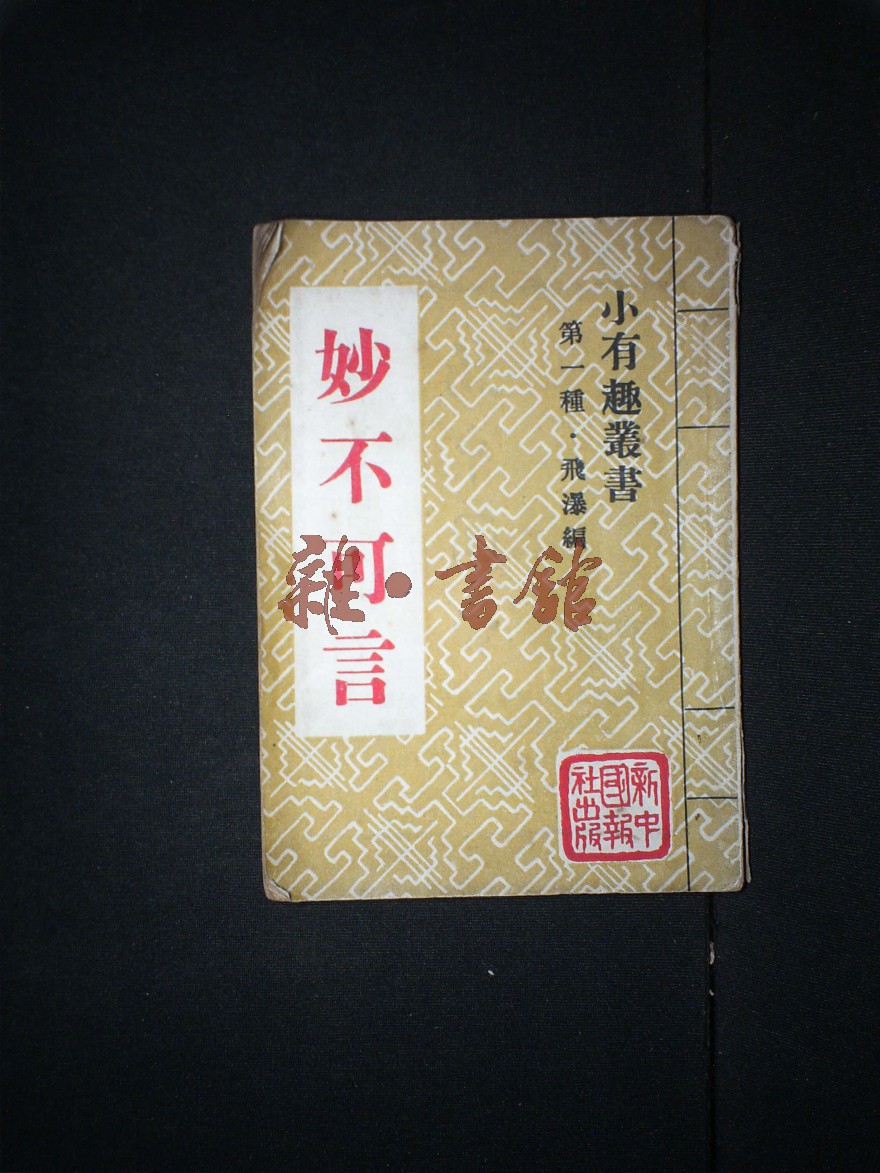 小有趣叢書
第一種·飛瀑編
妙不可言
新中
國報
社出版
雜·書館